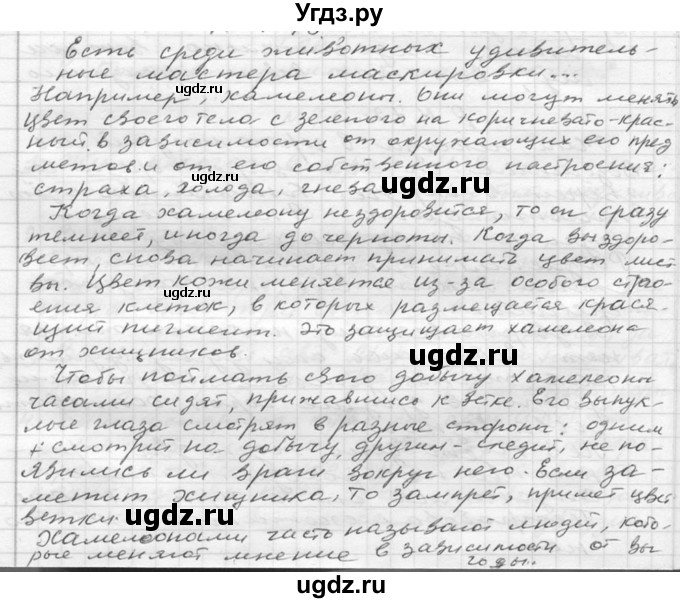 Угдз.ру
Есть среди животных удивитель-
ные мастера маскировки...
Например, хамелеоны. Они могут менять
цвет своего тела с зеленого на коричневато-крас-
ный в зависимости от окружающих его пред
метов и от его собственного настроения:
страха, холода, гнева
Когда хамелеону нездоровится, то он сразу
темнеет, иногда до черноты. Когда выздоро-
веет, снова начинает принимать цвет лист
вы. Цвет кожи меняется из-за особого стро-
ения клеток, в которых размещается крася-
щий пигмент. Это защищает хамелеона
от хищников.
Чтобы поймать свою добычу хамелеоны
часами сидят, прижавшись к ветке. Его выпук-
лые глаза смотрят в разные стороны: одним
смотрит на добычу, другим - следит, не по-
явились ли враги вокруг него. Если за-
метит хищника, то замрет, примет цвет
ветки
Хамелеонами часть называют людей, кото-
рые меняют мнение в зависимости от вы
годы..
ugdz.ru
ugdz.ru
ugdz.ru
ugdz.ru
ugdz.ru
ugdz.ru
ugdz.ru
ugdz.ru